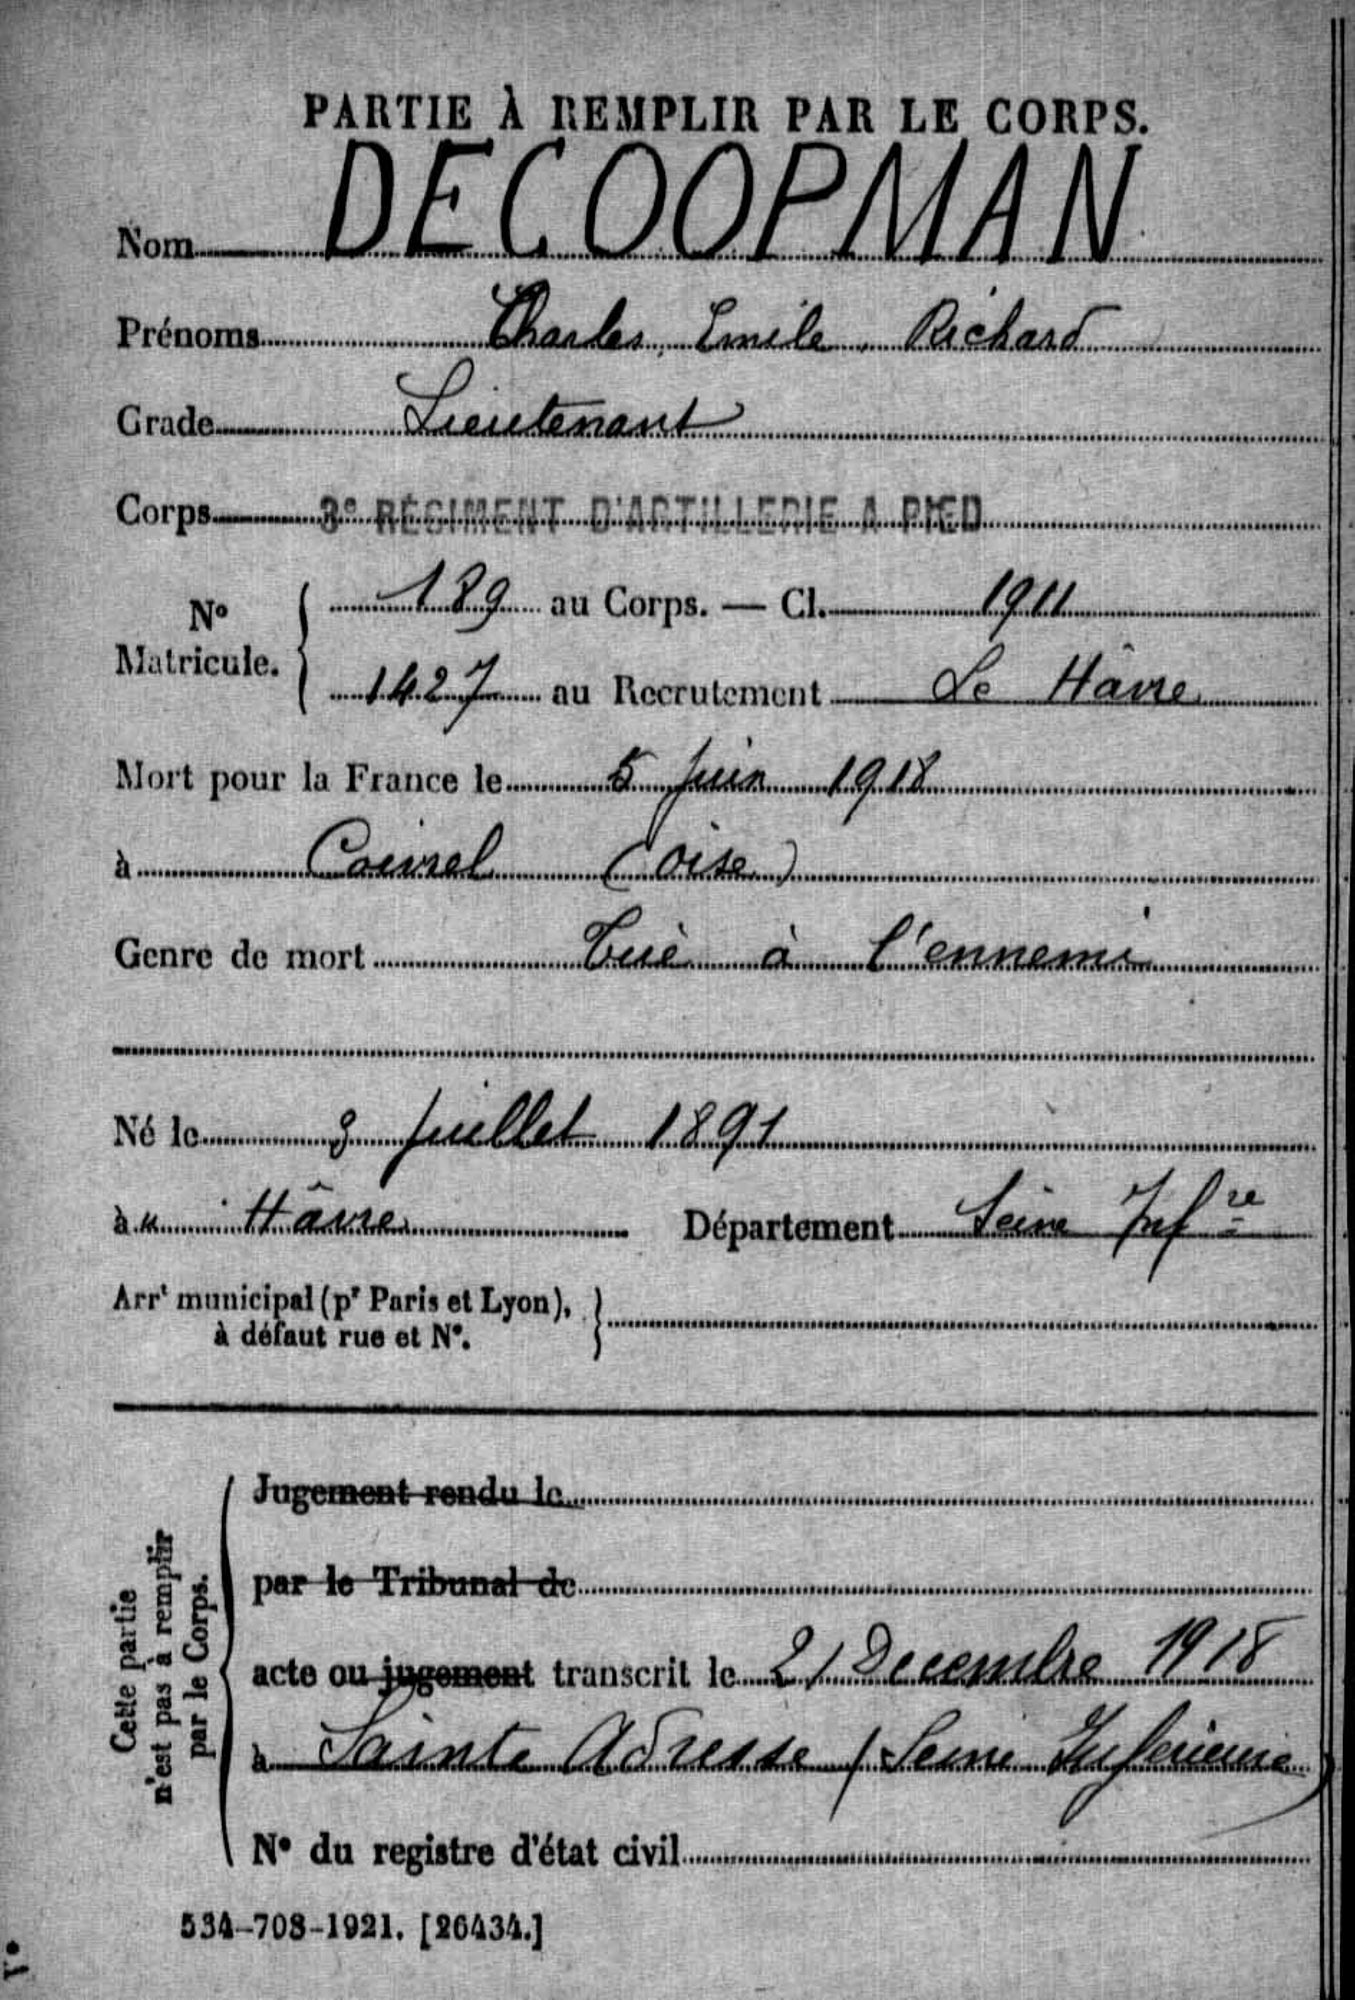 PARTIE À REMPLIR PAR LE CORPS.
Nom DECOOPMAN
Prénoms Charles, Emile, Richard
Grade Lieutenant
Corps 3e RÉGIMENT D'ARTILLERIE A PIED
N° Matricule. 189 au Corps. — Cl. 1911
1427 au Recrutement Le Hâvre
Mort pour la France le 5 juin 1918
à Coivrel (Oise)
Genre de mort Tué à l'ennemi
Né le 3 juillet 1891
à u Hâvre Département Seine Infre
Arrt municipal (pr Paris et Lyon),
à défaut rue et N°.
Cette partie
n'est pas à remplir
par le Corps.
Jugement rendu le
par le Tribunal de
acte ou jugement transcrit le 21 Decembre 1918
à Sainte Adresse (Seine Inférieure)
N° du registre d'état civil
534-708-1921. [26434.]